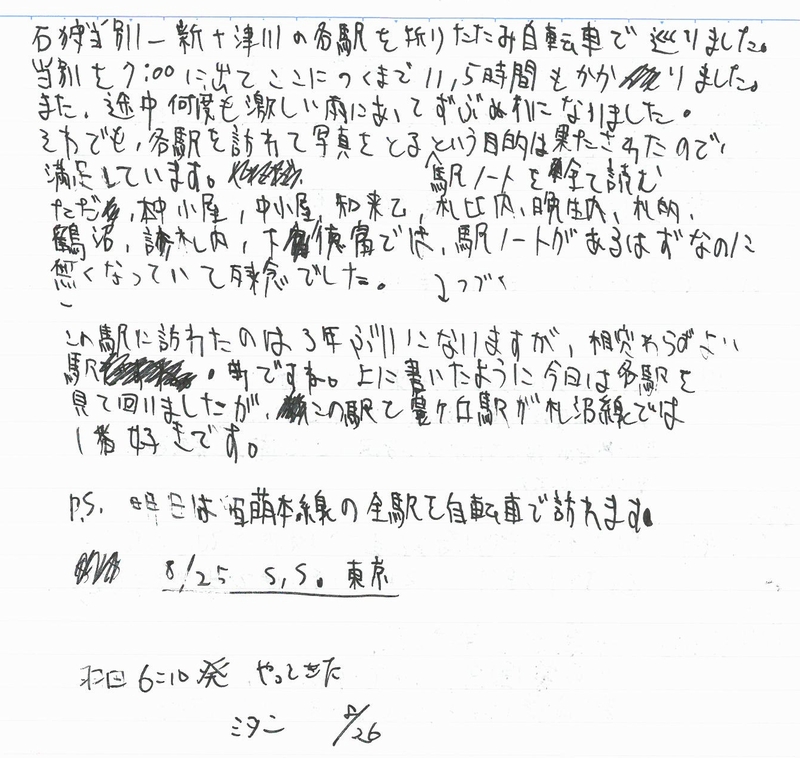 石狩当別－新十津川の各駅を折りたたみ自転車で巡りました。
当別を7:00に出てここにつくまで11,5時間もかかりました。
また、途中何度も激しい雨にあいてずぶぬれになりました。
それでも、各駅を訪れて写真をとるという目的は果たされたので、
満足しています。 駅ノートを全て読む
ただ、本中小屋，中小屋，知来乙，札比内，晩生内，札的，
鶴沼，於札内，下徳富では，駅ノートがあるはずなのに
無くなっていて残念でした。 ↓つづく
この駅に訪れたのは3年ぶりになりますが，相変わらずよい
駅ですね。上に書いたように今日は各駅を
見て回りましたが，この駅と豊ヶ岡駅が札沼線では
1番好きです。
P.S. 明日は留萌本線の全駅を自転車で訪れます。
8/25 S.S. 東京
羽田6:10発 やってきた
ミタニ 8/26